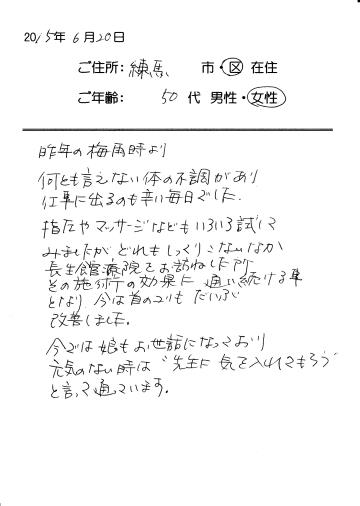 2015年6月20日
ご住所: 練馬 市・区 在住
ご年齢: 50代 男性・女性
昨年の梅雨時より
何とも言えない体の不調があり
仕事に出るのも辛い毎日でした.
指圧やマッサージなどもいろいろ試して
みましたが どれもしっくりこないなか
長生館療院をお訪ねした所
その施術の効果に 通い続ける事
となり 今は首のコリも だいぶ
改善しました.
今では娘もお世話になっており
元気のない時は “先生に 気を入れてもらう”
と言って通っています.